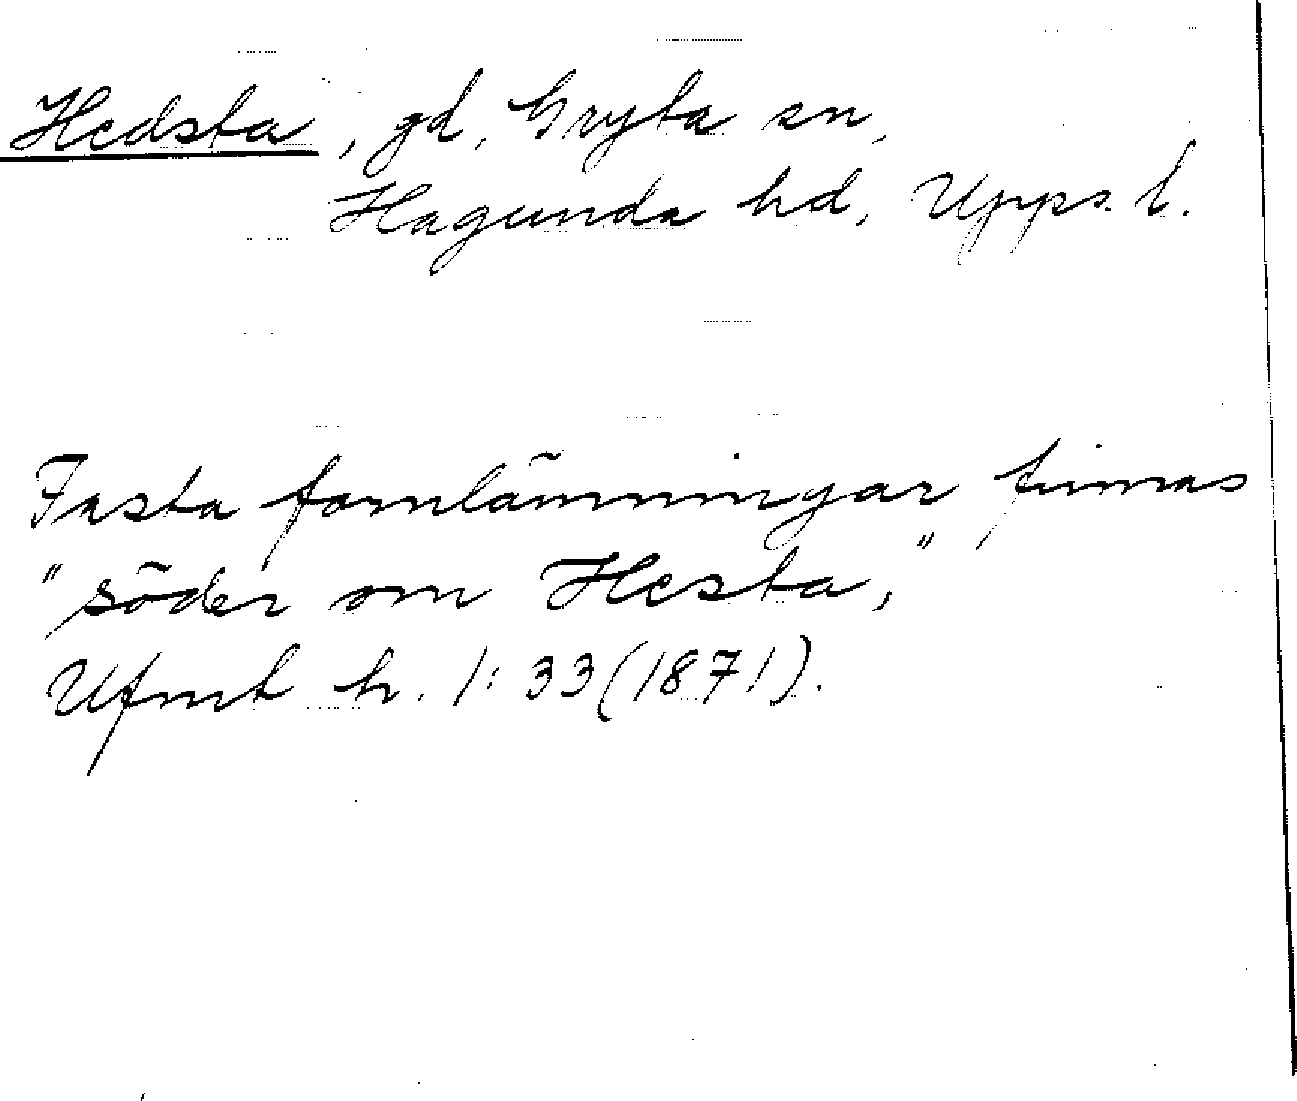 Hedsta, gd, Gryta sn,
Hagunda hd, Upps. l.
Fasta fornlämningar finnas
"söder om Hesta,"
Ufmt h. 1:33(1871).